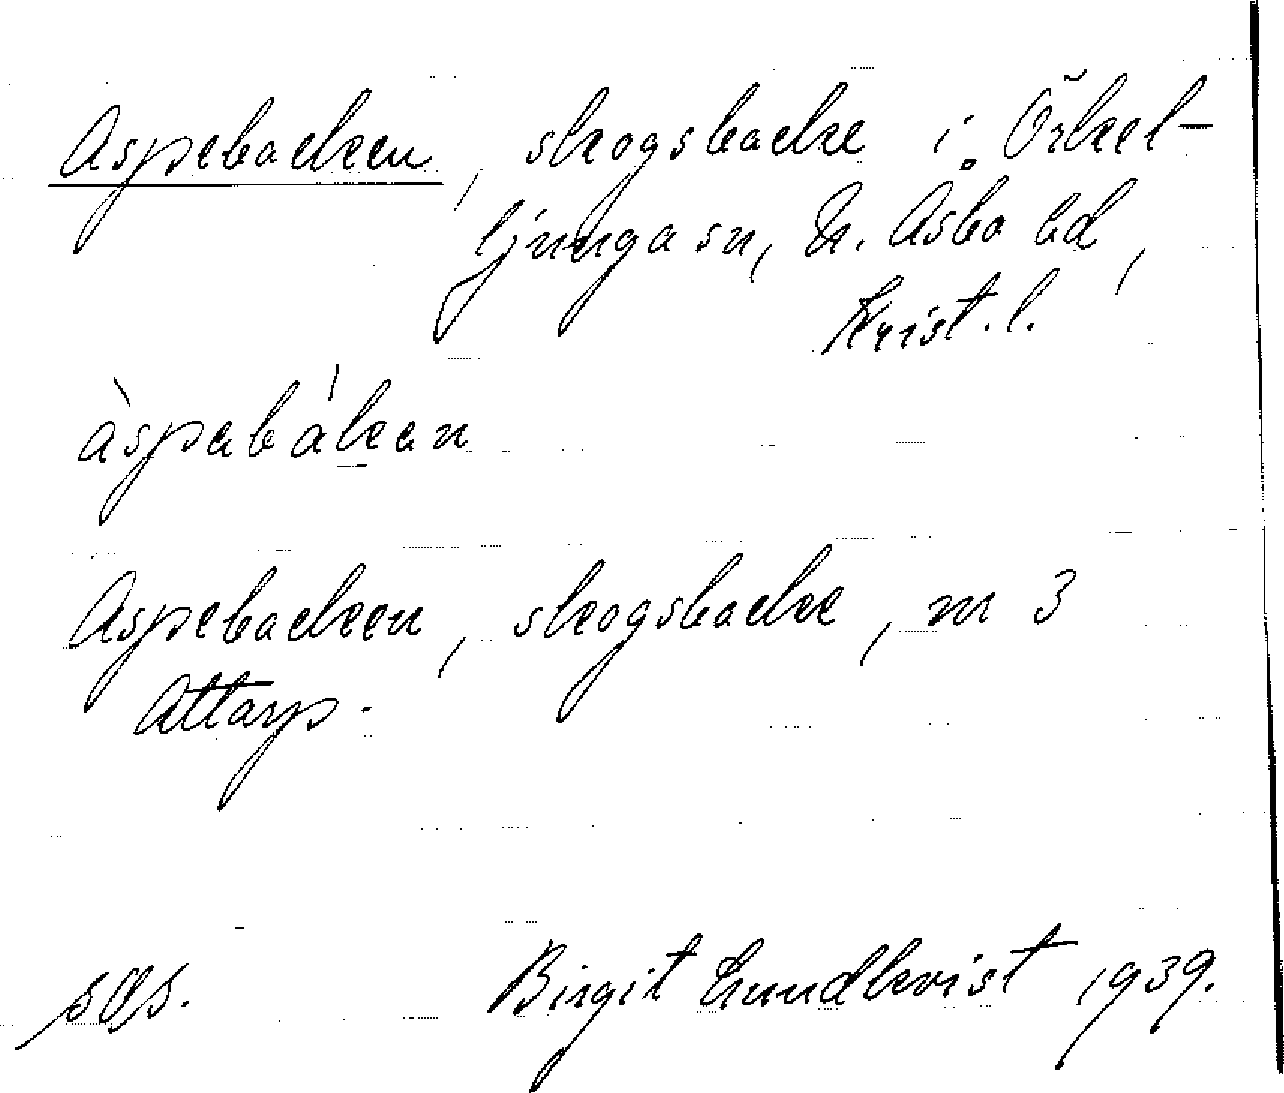 Aspebacken, skogsbacke i Örkel-
ljunga sn, N. Åsbo hd,
Krist. l.
àspabákan
Aspebacken, skogsbacke, m 3
Attarp.
sgs. Birgit Lundkvist 1939.